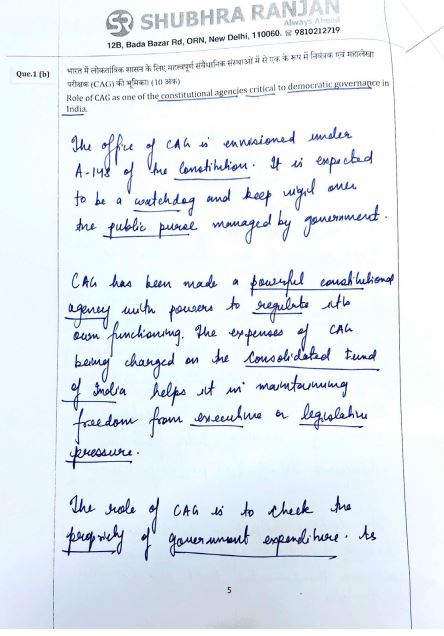 SR SHUBHRA RANJAN
Always Ahead
12B, Bada Bazar Rd, ORN, New Delhi, 110060. ☎ 9810212719
Que.1 (b)
भारत में लोकतांत्रिक शासन के लिए महत्वपूर्ण संवैधानिक संस्थाओं में से एक के रूप में नियंत्रक एवं महालेखा
परीक्षक (CAG) की भूमिका। (10 अंक)
Role of CAG as one of the constitutional agencies critical to democratic governance in
India.
The office of CAG is envisioned under
A-148 of the Constitution. It is expected
to be a watchdog and keep vigil over
the public purse managed by government.
CAG has been made a powerful constitutional
agency with powers to regulate its
own functioning. The expenses of CAG
being charged on the Consolidated Fund
of India helps it in maintaining
freedom from executive or legislative
pressure.
The role of CAG is to check the
propriety of government expenditure. As
5